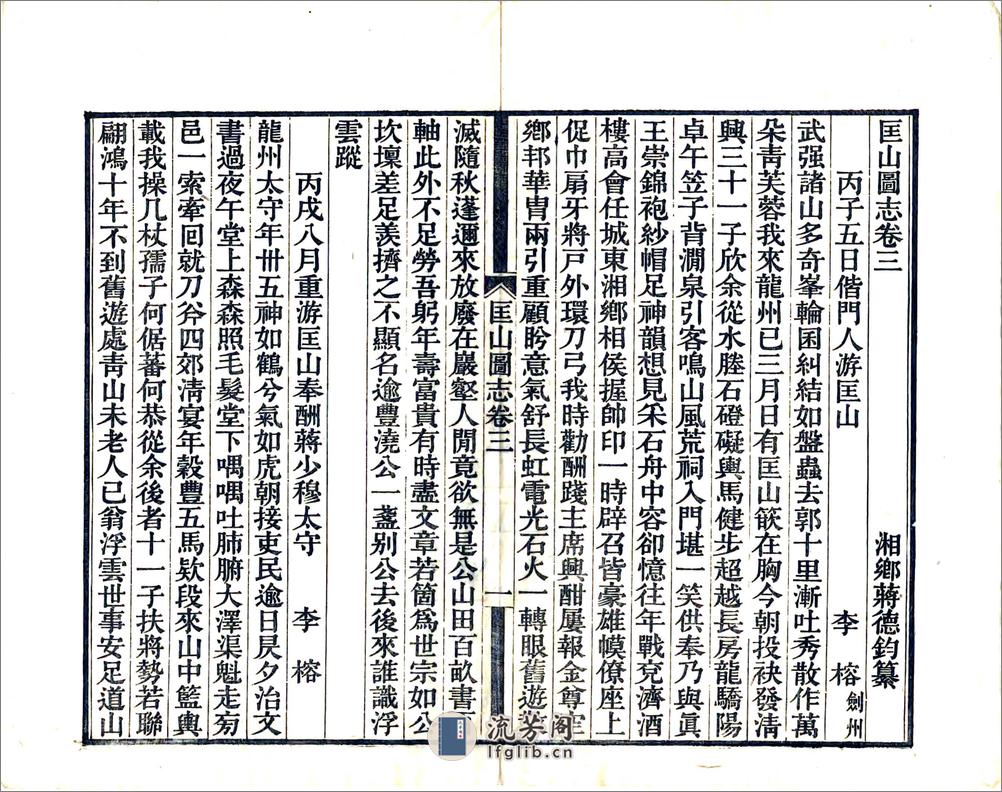 匡山圖志卷三
湘鄉蔣德鈞纂
丙子五日偕門人游匡山
李榕劍州
武强諸山多奇峯輪囷糾結如盤蟲去郭十里漸吐秀散作萬
朵靑芙蓉我來龍州已三月日有匡山篏在胸今朝投袂發淸
興三十一子欣余從水塍石磴礙輿馬健步超越長房龍驕陽
卓午笠子背澗泉引客鳴山風荒祠入門堪一笑供奉乃與眞
王崇錦袍紗帽足神韻想見采石舟中容卻憶往年戰兗濟酒
樓高會任城東湘鄉相侯握帥印一時辟召皆豪雄幙僚座上
促巾扇牙將戸外環刀弓我時勸酬踐主席興酣屢報金尊空
鄉邦華冑兩引重顧盻意氣舒長虹電光石火一轉眼舊遊
匡山圖志卷三
一
滅隨秋蓬邇來放廢在巖壑人閒竟欲無是公山田百畝書
軸此外不足勞吾躬年壽富貴有時盡文章若箇爲世宗如公
坎壈差足羨擠之不顯名逾豐澆公一盞别公去後來誰識浮
雲蹤
丙戌八月重游匡山奉酬蔣少穆太守
李榕
龍州太守年卅五神如鶴兮氣如虎朝接吏民逾日昃夕治文
書過夜午堂上森森照毛髮堂下喁喁吐肺腑大澤渠魁走匈
邑一索牽回就刀斧四郊淸宴年穀豐五馬欵段來山中籃輿
載我操几杖孺子何倨蕃何恭從余後者十一子扶將勢若聯
翩鴻十年不到舊遊處靑山未老人已翁浮雲世事安足道山
流芳阁
lfglib.cn